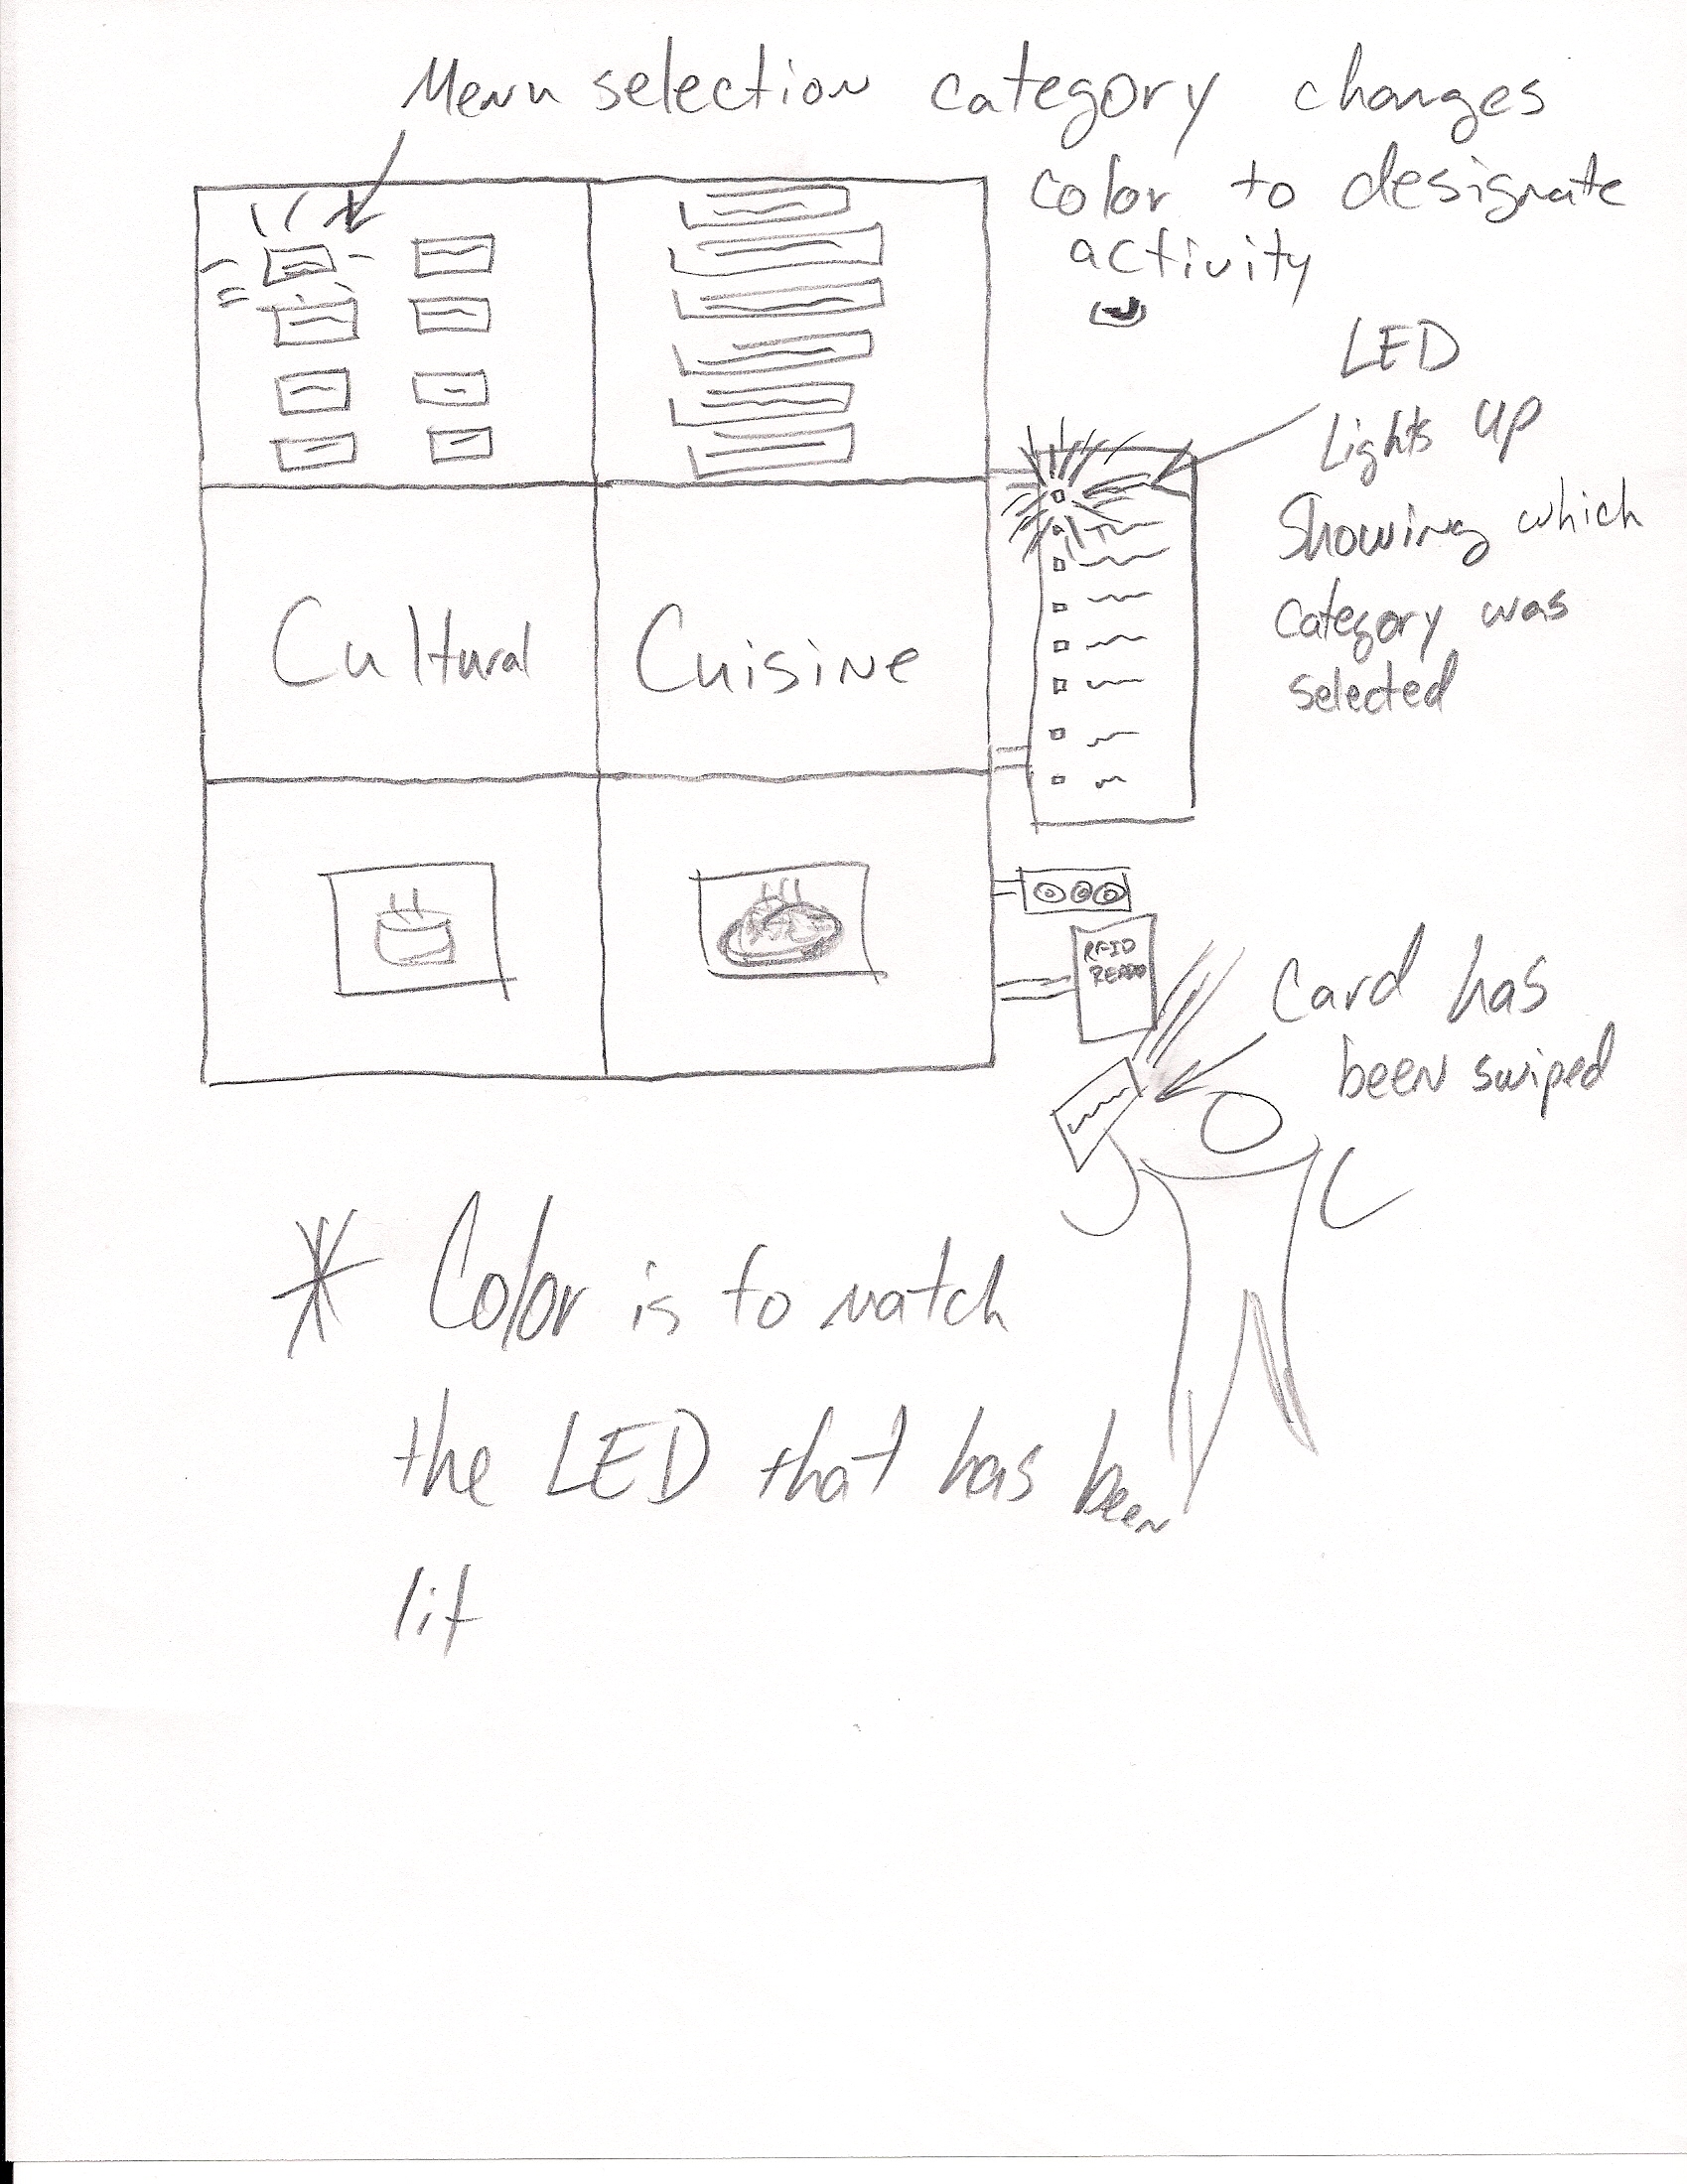 Menu selection category changes
color to designate
activity
LED
Lights up
Showing which
category was
selected
Cultural Cuisine
RFID
READER
Card has
been swiped
* Color is to match
the LED that has been
lit